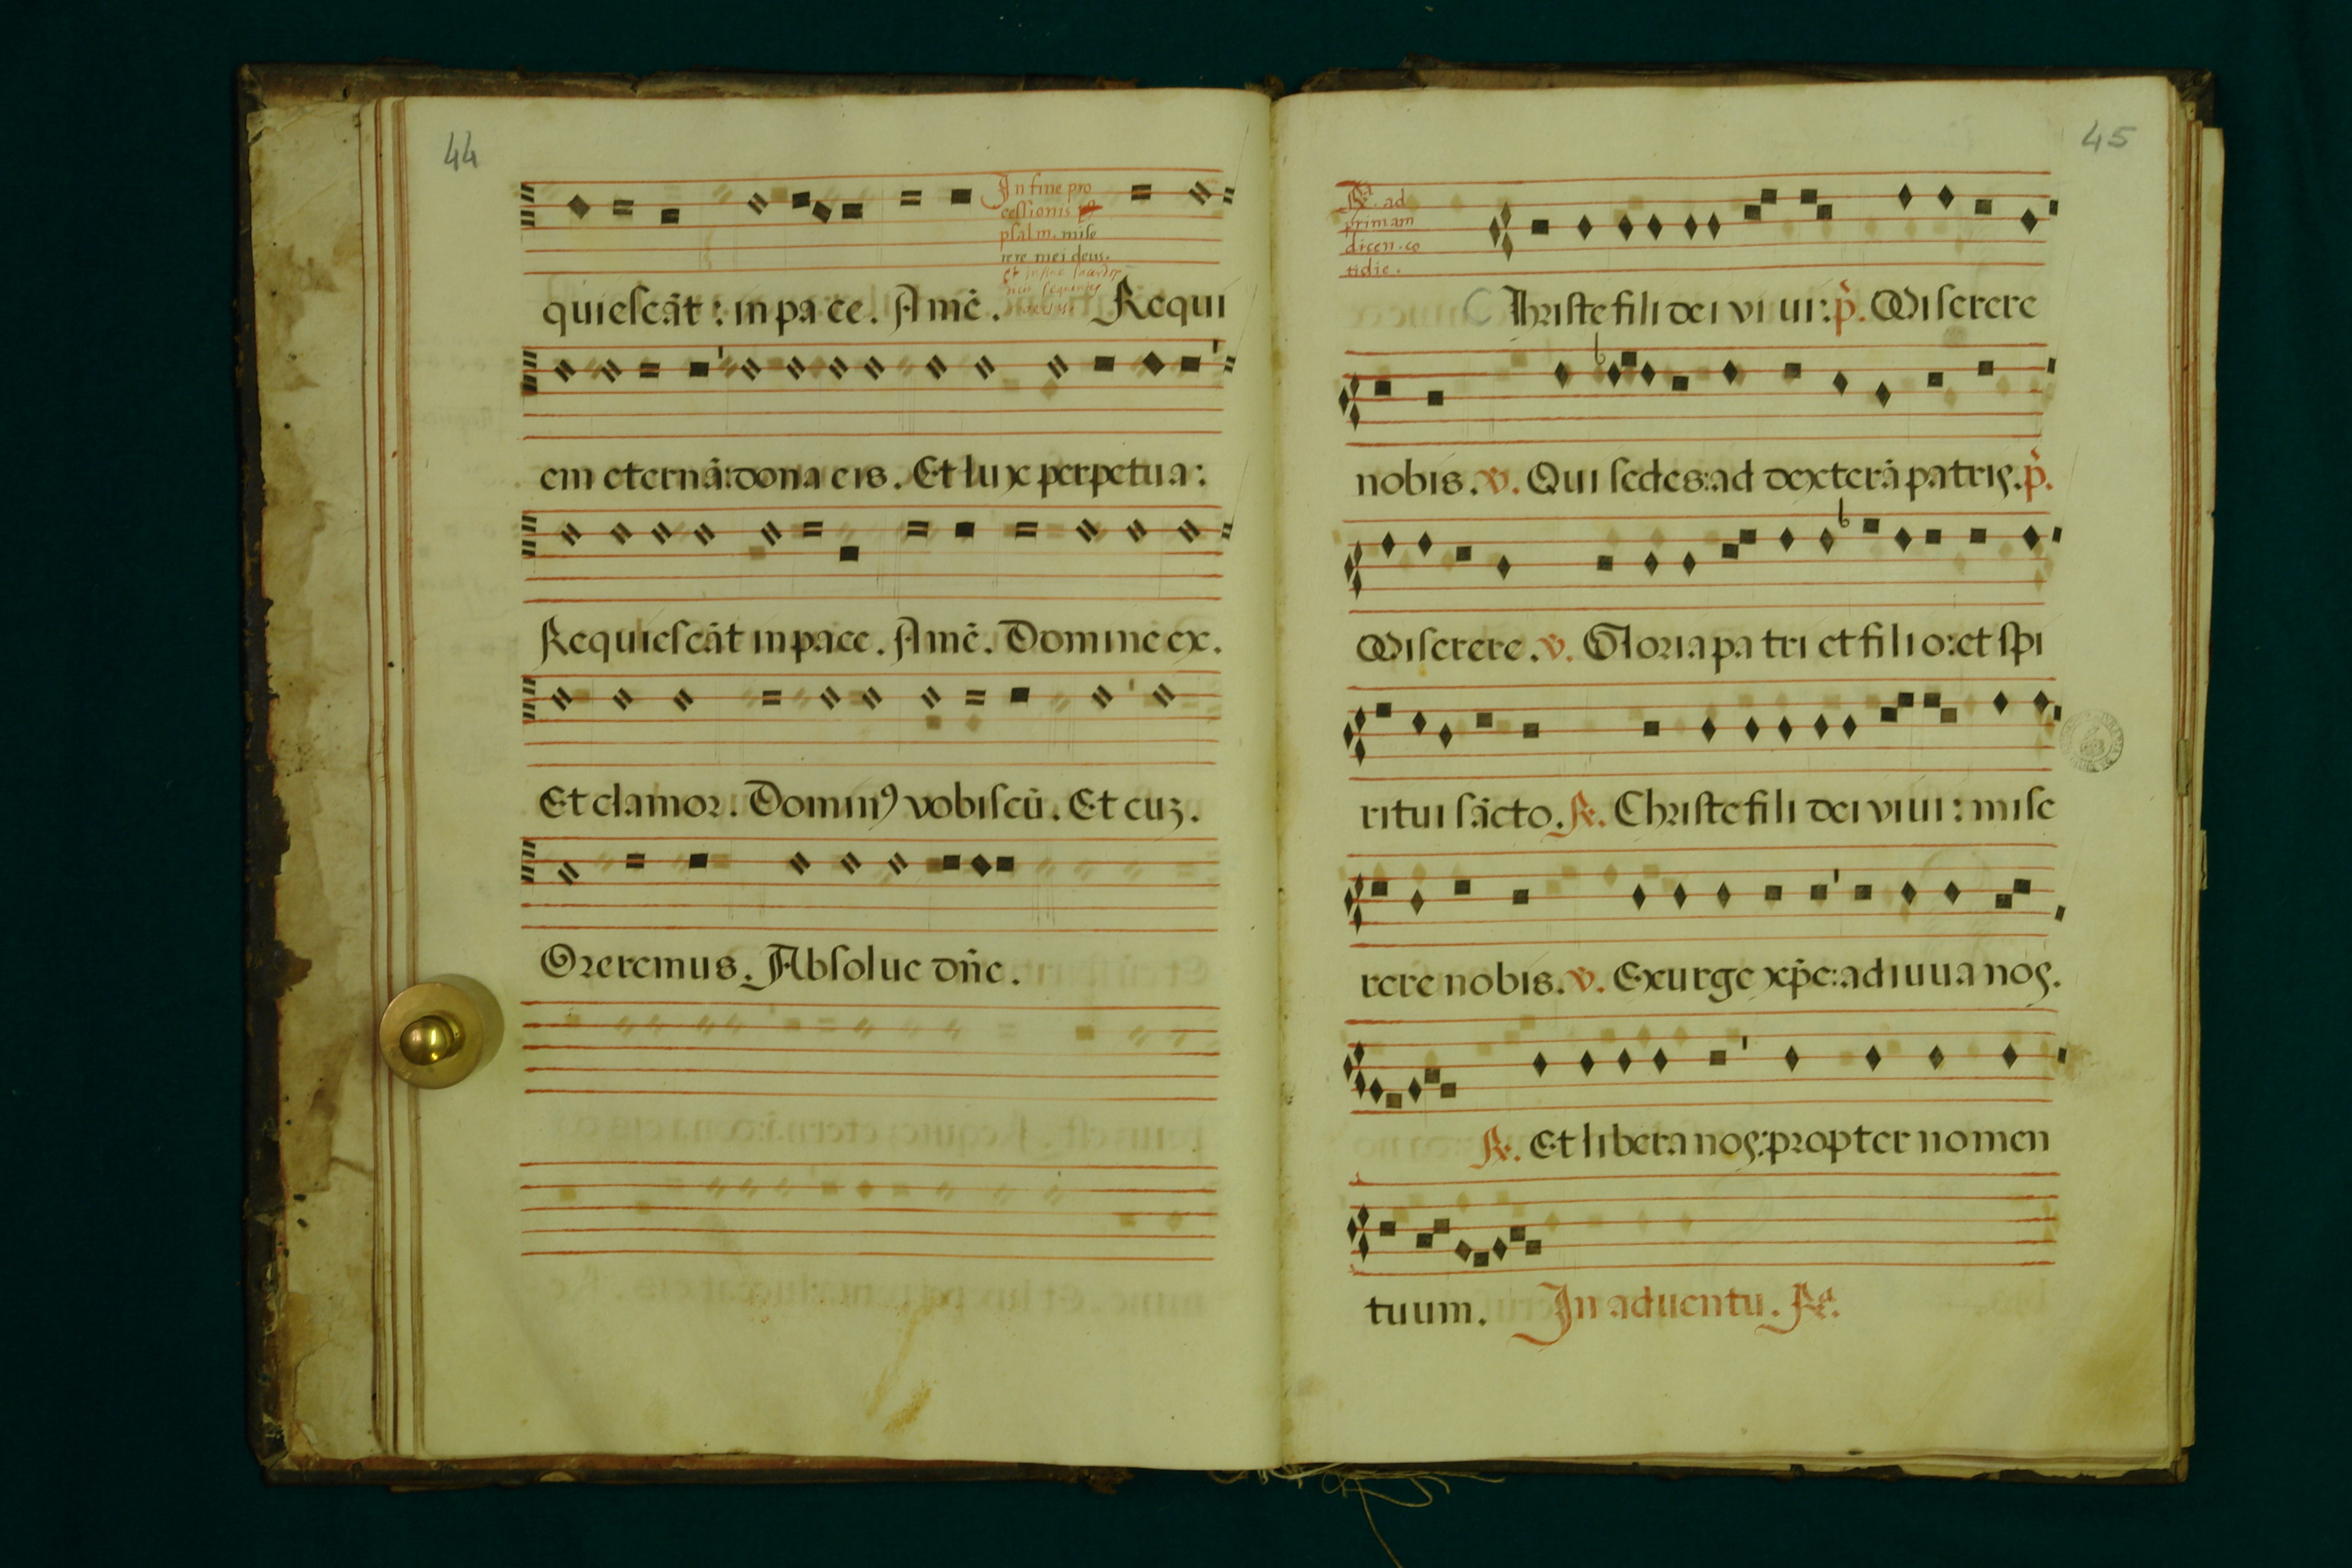 44
In fine pro
cessionis
psalm. mise
rere mei deus.
quiescāt : in pace. Amē. Requi
em eternā: dona eis. Et lux perpetua:
Requiescāt in pace. Amē. Domine ex.
Et clamor. Dominꝰ vobiscū. Et cuz.
Oreremus. Absolue dn̄e.
45
R. ad
primam
dicen. co
tidie.
Christe fili dei vi ui: p̄. Miserere
nobis. v. Qui sedes: ad dexterā patris. p̄.
Miserere. v. Gloria pa tri et fili o: et spi
ritui sācto. R. Christe fili dei viui: mise
rere nobis. v. Exurge xp̄e: adiuua nos.
R. Et libera nos: propter nomen
tuum. In aduentu. R.